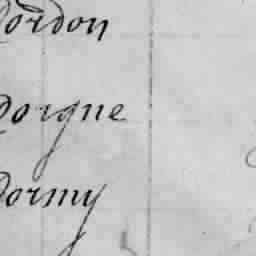 Dordon
Dorgne
Dormy